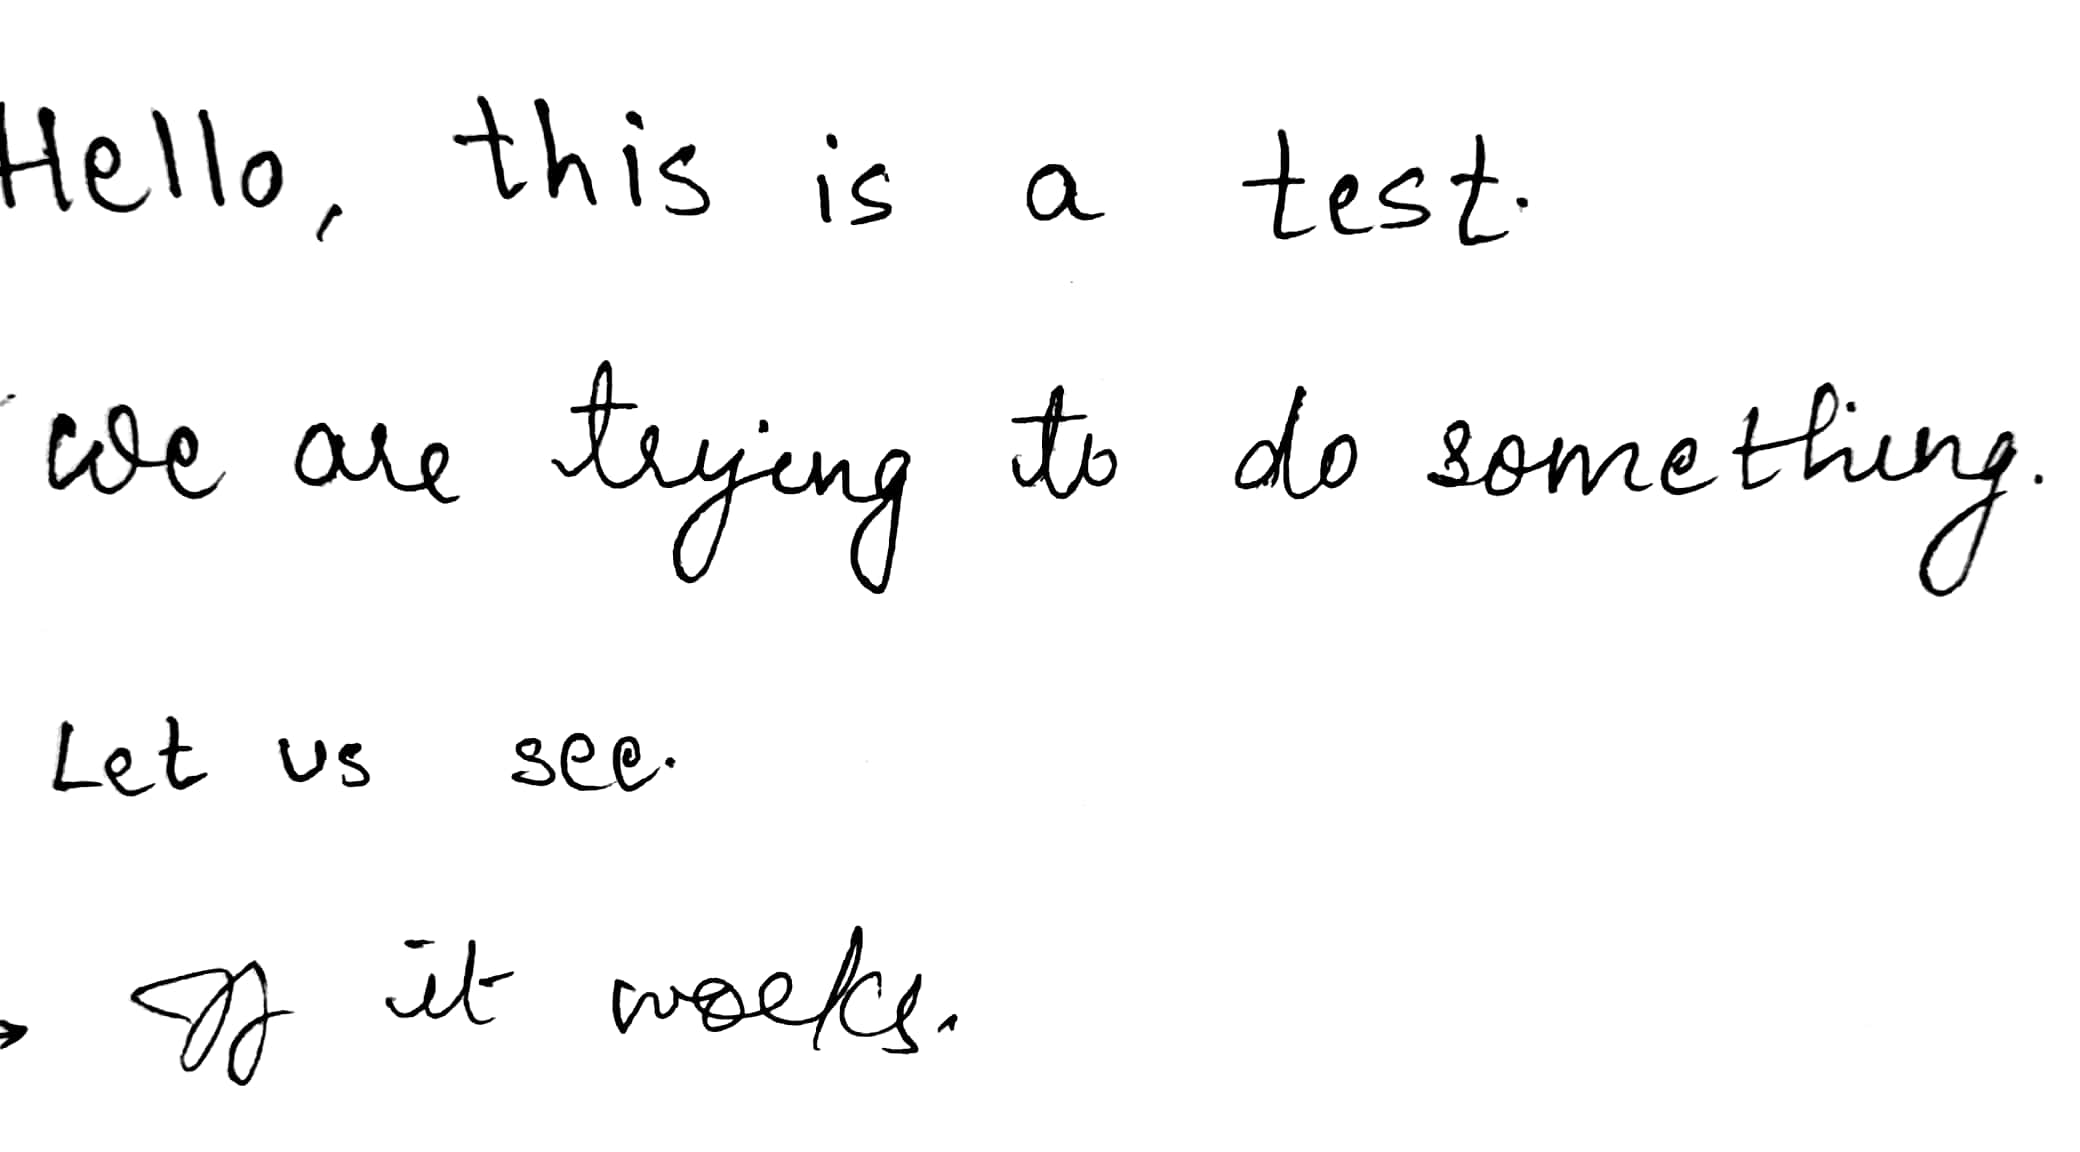 Hello, this is a test.
we are trying to do something.
Let us see.
If it works.